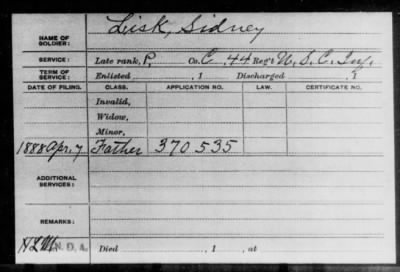 NAME OF SOLDIER: Lisk, Sidney
SERVICE: Late rank, P, Co. C, 44 Reg't U. S. C. Inf.
TERM OF SERVICE: Enlisted , 1 Discharged , 1
DATE OF FILING. CLASS. APPLICATION NO. LAW. CERTIFICATE NO.
Invalid,
Widow,
Minor,
1888 Apr. 7 Father 370 535
ADDITIONAL SERVICES:
REMARKS:
N. D. A. Died , 1 , at